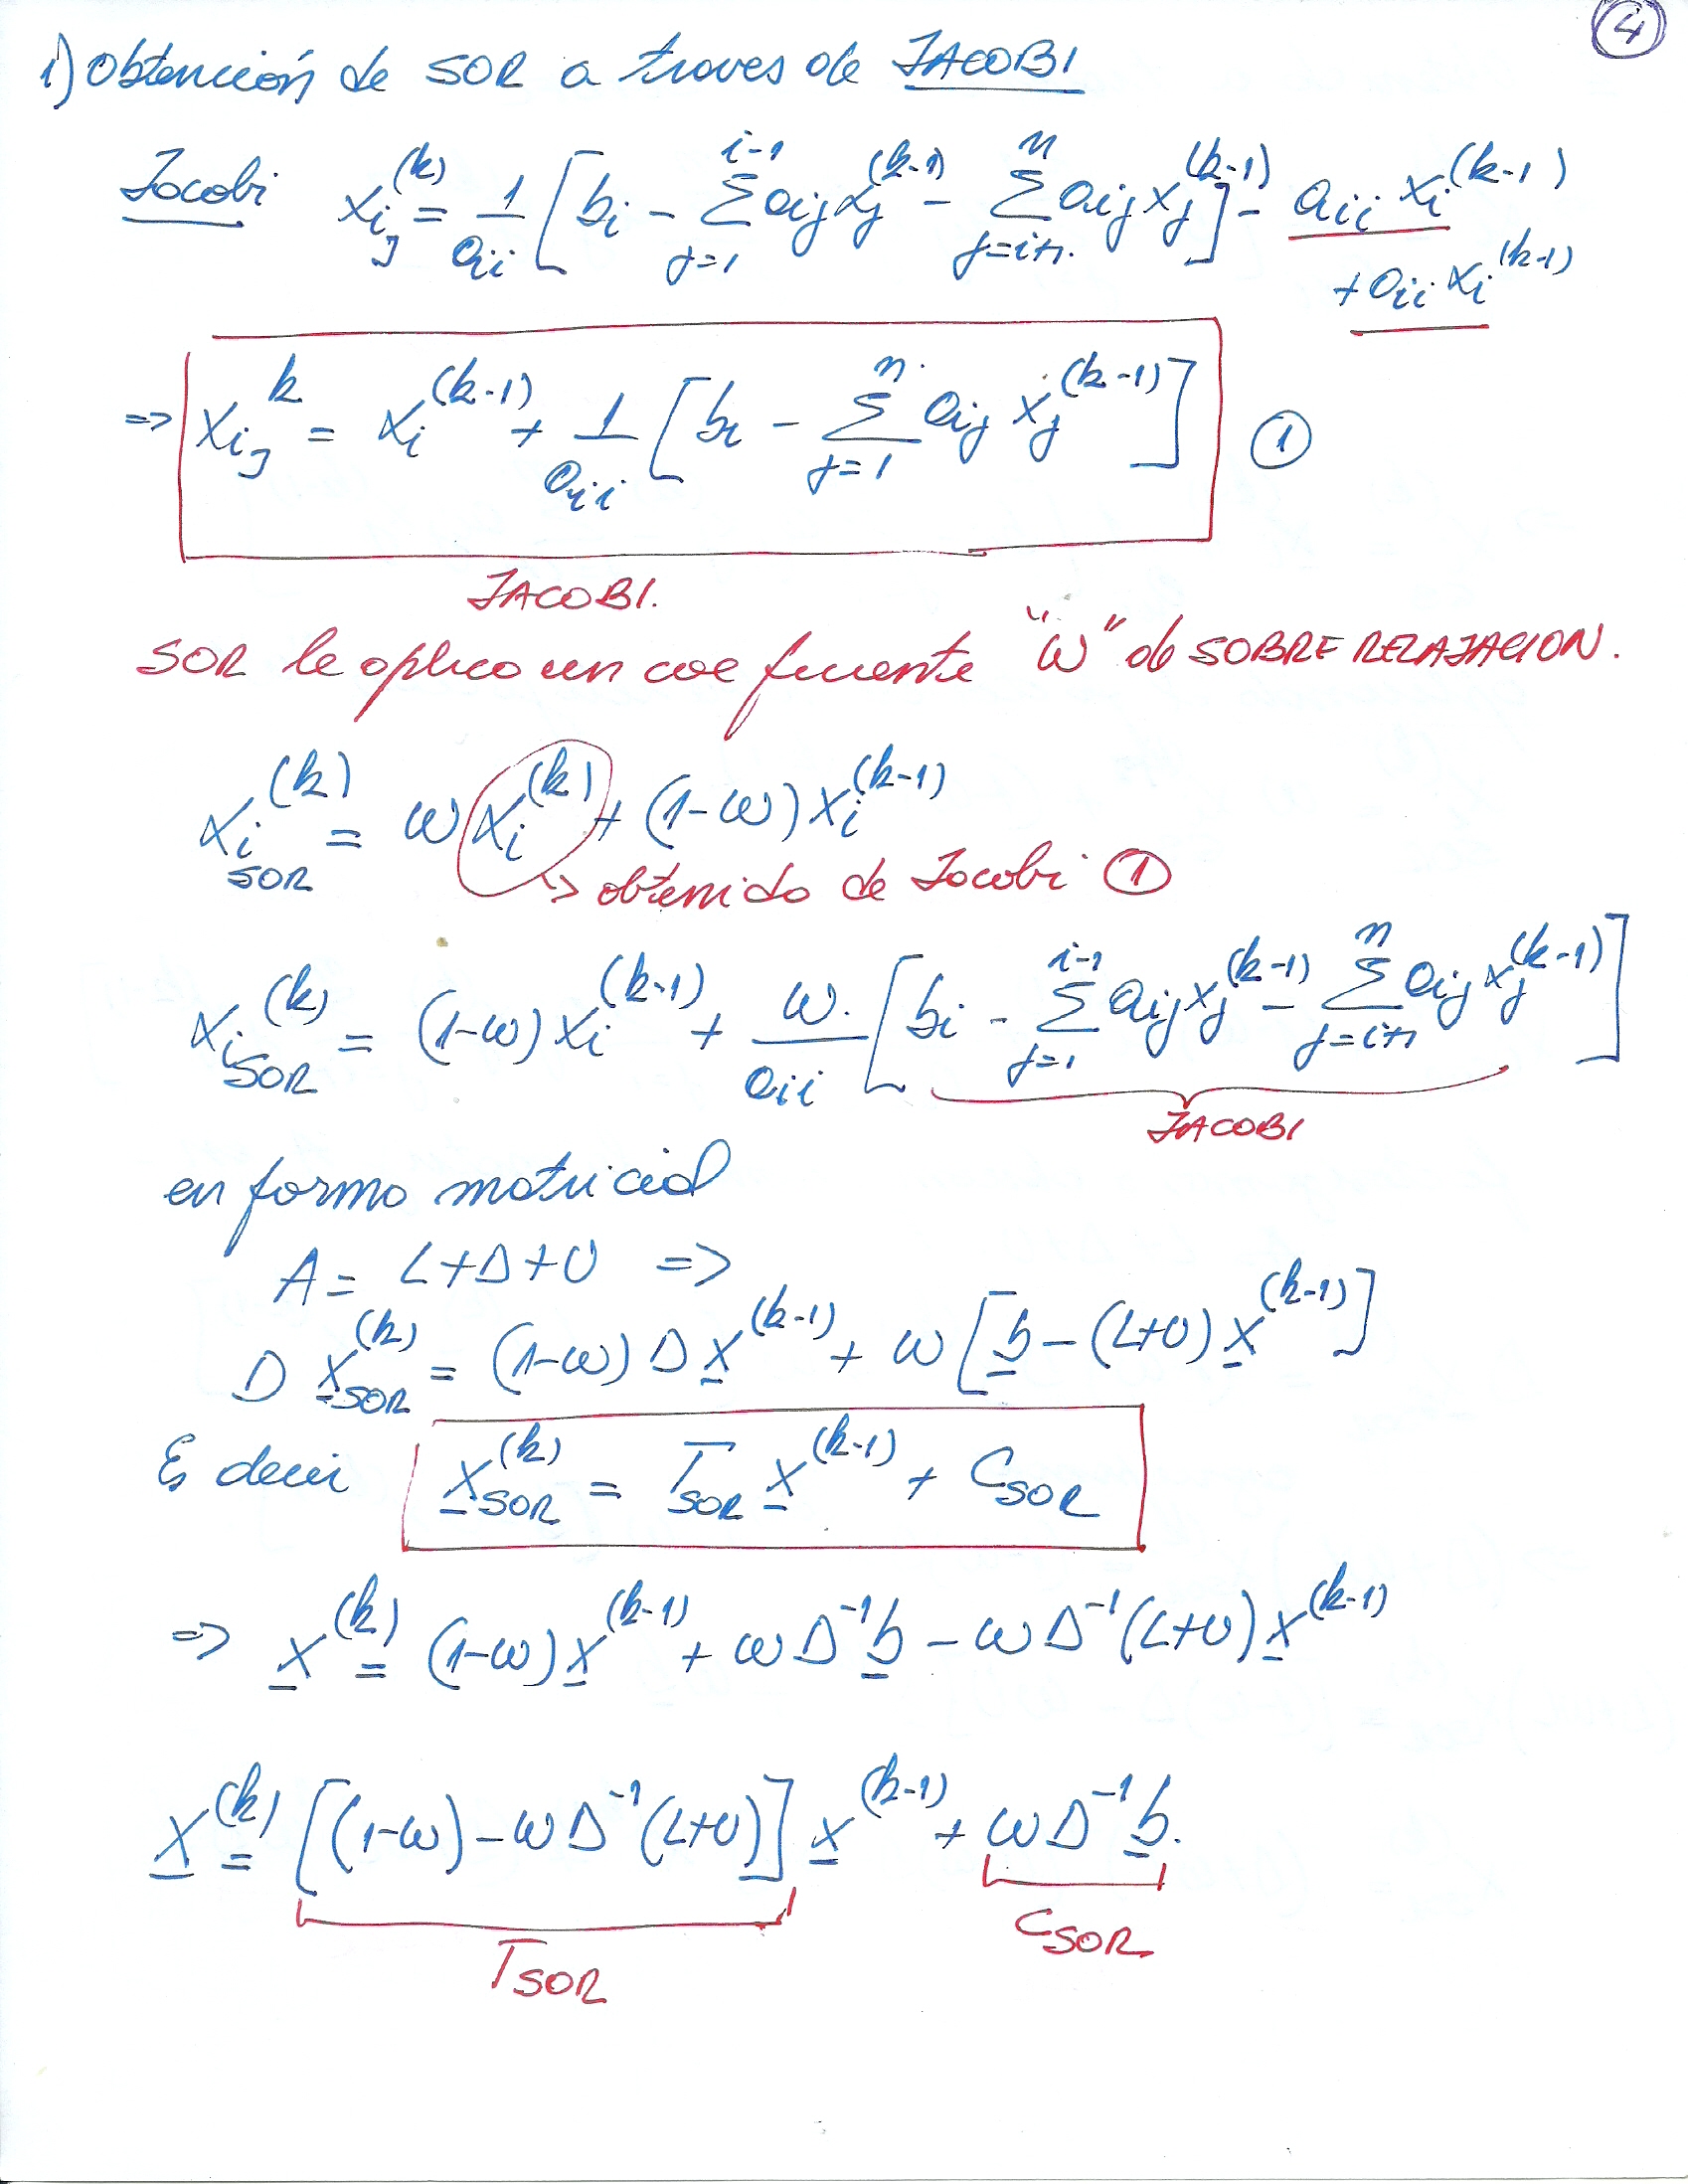 ④
i) Obtención de SOR a traves de JACOBI
Jacobi x_{i_J}^{(k)} = \frac{1}{a_{ii}} [ b_i - \sum_{j=1}^{i-1} a_{ij} x_j^{(k-1)} - \sum_{j=i+1}^{n} a_{ij} x_j^{(k-1)} ] - a_{ii} x_i^{(k-1)}
+ a_{ii} x_i^{(k-1)}
=> x_{i_J}^{k} = x_i^{(k-1)} + \frac{1}{a_{ii}} [ b_i - \sum_{j=1}^{n} a_{ij} x_j^{(k-1)} ] ①
JACOBI.
SOR le aplico un coeficiente "ω" de SOBRE RELAJACION.
x_{i SOR}^{(k)} = ω x_i^{(k)} + (1-ω) x_i^{(k-1)}
↳ obtenido de Jacobi ①
x_{i SOR}^{(k)} = (1-ω) x_i^{(k-1)} + \frac{ω.}{a_{ii}} [ b_i - \sum_{j=1}^{i-1} a_{ij} x_j^{(k-1)} - \sum_{j=i+1}^{n} a_{ij} x_j^{(k-1)} ]
JACOBI
en forma matricial
A = L+D+U =>
D x_{SOR}^{(k)} = (1-ω) D x^{(k-1)} + ω [ b - (L+U) x^{(k-1)} ]
Es decir x_{SOR}^{(k)} = T_{SOR} x^{(k-1)} + C_{SOR}
=> x^{(k)} = (1-ω) x^{(k-1)} + ω D^{-1} b - ω D^{-1} (L+U) x^{(k-1)}
x^{(k)} = [ (1-ω) - ω D^{-1} (L+U) ] x^{(k-1)} + ω D^{-1} b.
T_{SOR} C_{SOR}